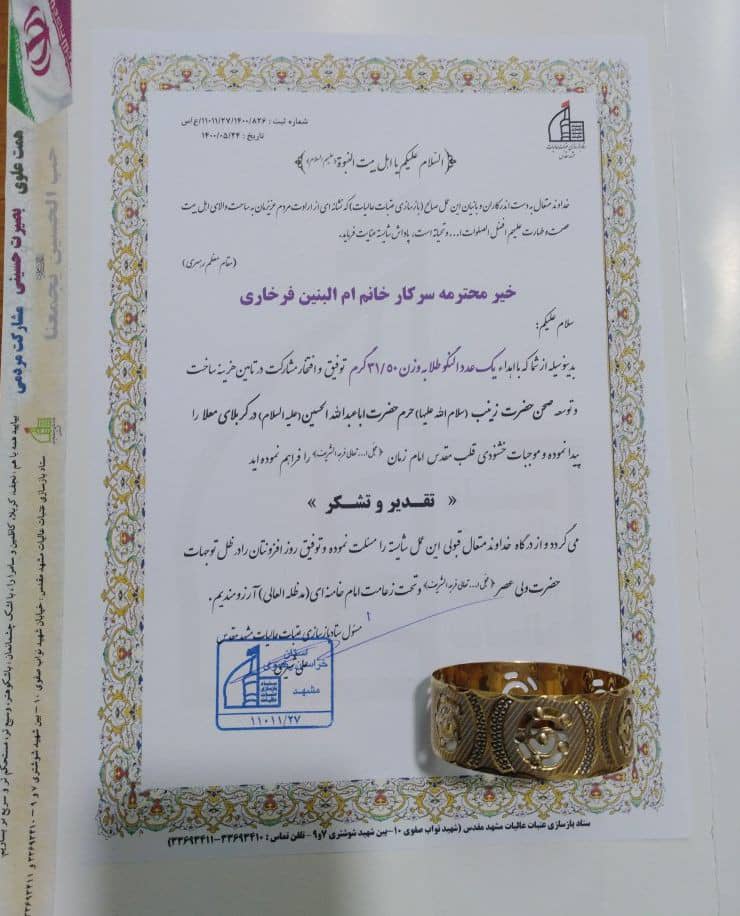 شماره ثبت : ۱۱۰۱۱/۲۷/۱۴۰۰/۸۲۶/ع/س
تاریخ : ۱۴۰۰/۰۵/۲۴
السلام علیکم یا اهل بیت النبوة (علیهم السلام)
خداوند متعال به دست اندرکاران و بانیان این عمل صالح (بازسازی عتبات عالیات) که نشانه ای از ارادت مردم عزیزمان به ساحت والای اهل بیت
عصمت و طهارت علیهم افضل الصلوات ا... و تحیاته است، پاداش شایسته عنایت فرماید.
(مقام معظم رهبری)
خیر محترمه سرکار خانم ام البنین فرخاری
سلام علیکم؛
بدینوسیله از شما که با اهداء یک عدد النگو طلا به وزن ۳۱/۵۰ گرم توفیق و افتخار مشارکت در تامین هزینه ساخت
و توسعه صحن حضرت زینب (سلام الله علیها) حرم حضرت اباعبدالله الحسین (علیه السلام) در کربلای معلا را
پیدا نموده و موجبات خشنودی قلب مقدس امام زمان (عجل ا... تعالی فرجه الشریف) را فراهم نموده اید
« تقدیر و تشکر »
می گردد و از درگاه خداوند متعال قبولی این عمل شایسته را مسئلت نموده و توفیق روز افزونتان را در ظل توجهات
حضرت ولی عصر (عجل ا... تعالی فرجه الشریف) و تحت زعامت امام خامنه ای (مدظله العالی) آرزومندیم.
مسئول ستاد بازسازی عتبات عالیات مشهد مقدس
استان
خراسان رضوی
مشهد
ستاد
بازسازی
عتبات
عالیات
۱۱۰۱۱/۲۷
ستاد بازسازی عتبات عالیات مشهد مقدس (شهید نواب صفوی ۱۰-بین شهید شوشتری ۷و۹-تلفن تماس : ۳۳۶۹۳۴۱۰-۳۳۶۹۳۴۱۱)
همت علوی بصیرت حسینی مشارکت مردمی
حب الحسین یجمعنا
ستاد بازسازی عتبات عالیات مشهد مقدس: خیابان شهید نواب صفوی ۱۰- بین شهید شوشتری ۷ و ۹ - ۳۳۶۹۳۴۱۰ و ۳۳۶۹۳۴۱۱
بیایید همه با هم، نجف، کربلا، کاظمین و سامرا را، با اشک چشمانمان، باشکوهتر، وسیع تر، مستحکم تر و سریع تر بسازیم